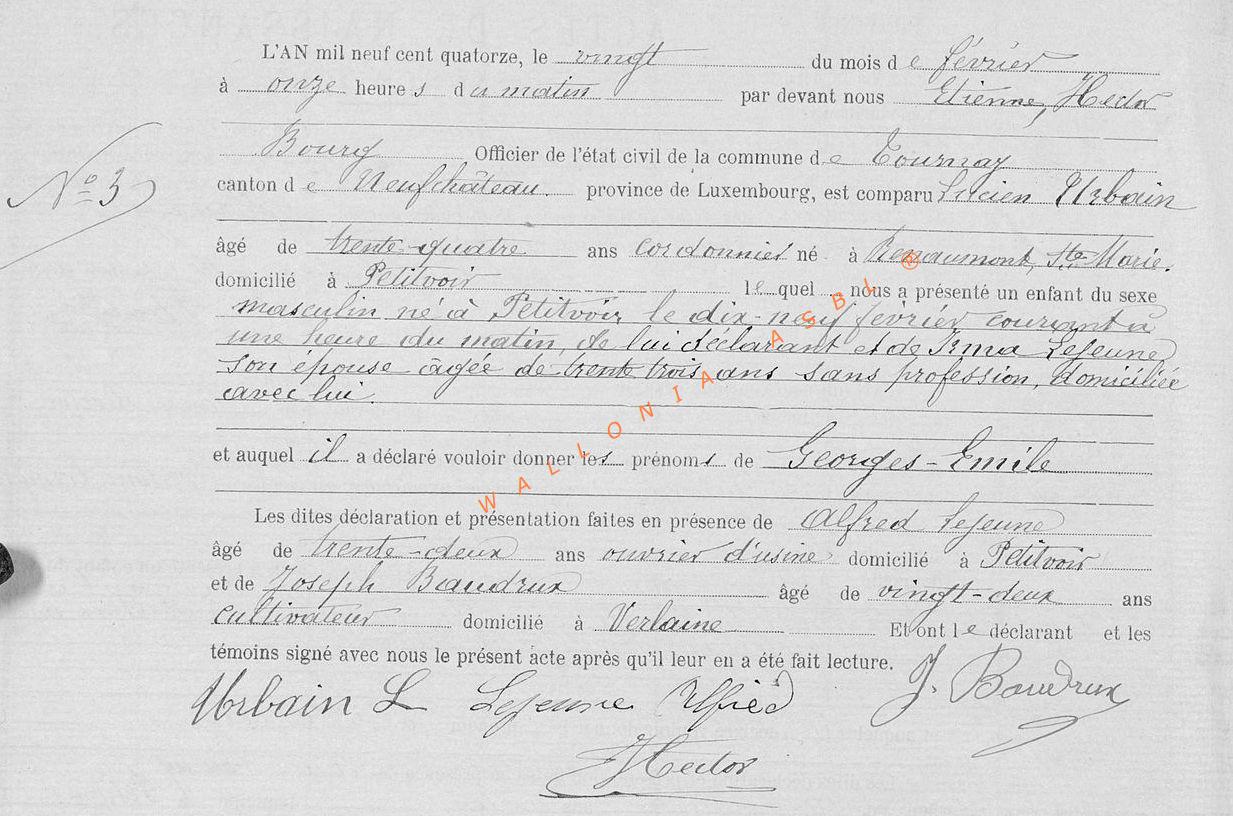 L'AN mil neuf cent quatorze, le vingt du mois de février
à onze heures du matin par devant nous Etienne, Hector
Bourg Officier de l'état civil de la commune de Tournay
N° 3
canton de Neufchâteau. province de Luxembourg, est comparu Lucien Urbain
âgé de trente-quatre ans cordonnier né à Renaumont, Ste Marie.
domicilié à Petitvoir lequel nous a présenté un enfant du sexe
masculin né à Petitvoir le dix-neuf février courant à
une heure du matin, de lui déclarant et de Irma Lejeune,
son épouse âgée de trente trois ans sans profession, domiciliée
avec lui.
et auquel il a déclaré vouloir donner les prénoms de Georges-Emile
WALLONIA ASBL ®
Les dites déclaration et présentation faites en présence de Alfred Lejeune
âgé de trente-deux ans ouvrier d'usine domicilié à Petitvoir
et de Joseph Baudrux âgé de vingt-deux ans
cultivateur domicilié à Verlaine Et ont le déclarant et les
témoins signé avec nous le présent acte après qu'il leur en a été fait lecture.
Urbain L Lejeune Alfred J. Baudrux
Hector